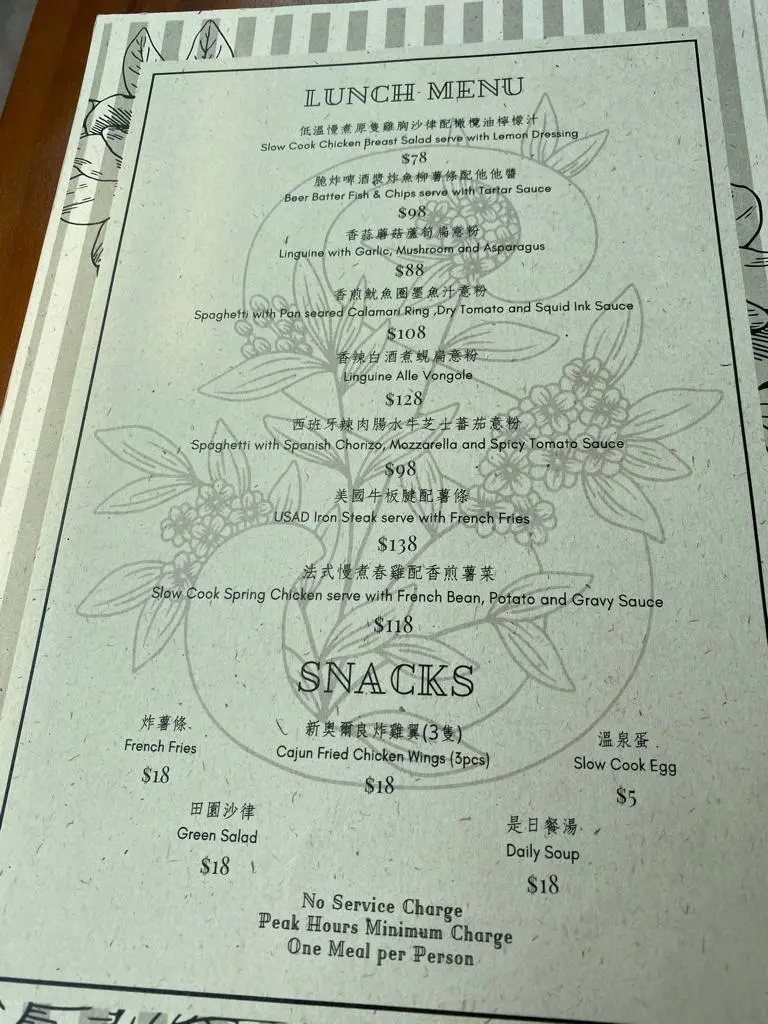 LUNCH MENU
低溫慢煮原隻雞胸沙律配橄欖油檸檬汁
Slow Cook Chicken Breast Salad serve with Lemon Dressing
$78
脆炸啤酒漿炸魚柳薯條配他他醬
Beer Batter Fish & Chips serve with Tartar Sauce
$98
香蒜蘑菇蘆筍扁意粉
Linguine with Garlic, Mushroom and Asparagus
$88
香煎魷魚圈墨魚汁意粉
Spaghetti with Pan seared Calamari Ring ,Dry Tomato and Squid Ink Sauce
$108
香辣白酒煮蜆扁意粉
Linguine Alle Vongole
$128
西班牙辣肉腸水牛芝士蕃茄意粉
Spaghetti with Spanish Chorizo, Mozzarella and Spicy Tomato Sauce
$98
美國牛板腱配薯條
USAD Iron Steak serve with French Fries
$138
法式慢煮春雞配香煎薯菜
Slow Cook Spring Chicken serve with French Bean, Potato and Gravy Sauce
$118
SNACKS
炸薯條
French Fries
$18
新奧爾良炸雞翼(3隻)
Cajun Fried Chicken Wings (3pcs)
$18
溫泉蛋
Slow Cook Egg
$5
田園沙律
Green Salad
$18
是日餐湯
Daily Soup
$18
No Service Charge
Peak Hours Minimum Charge
One Meal per Person